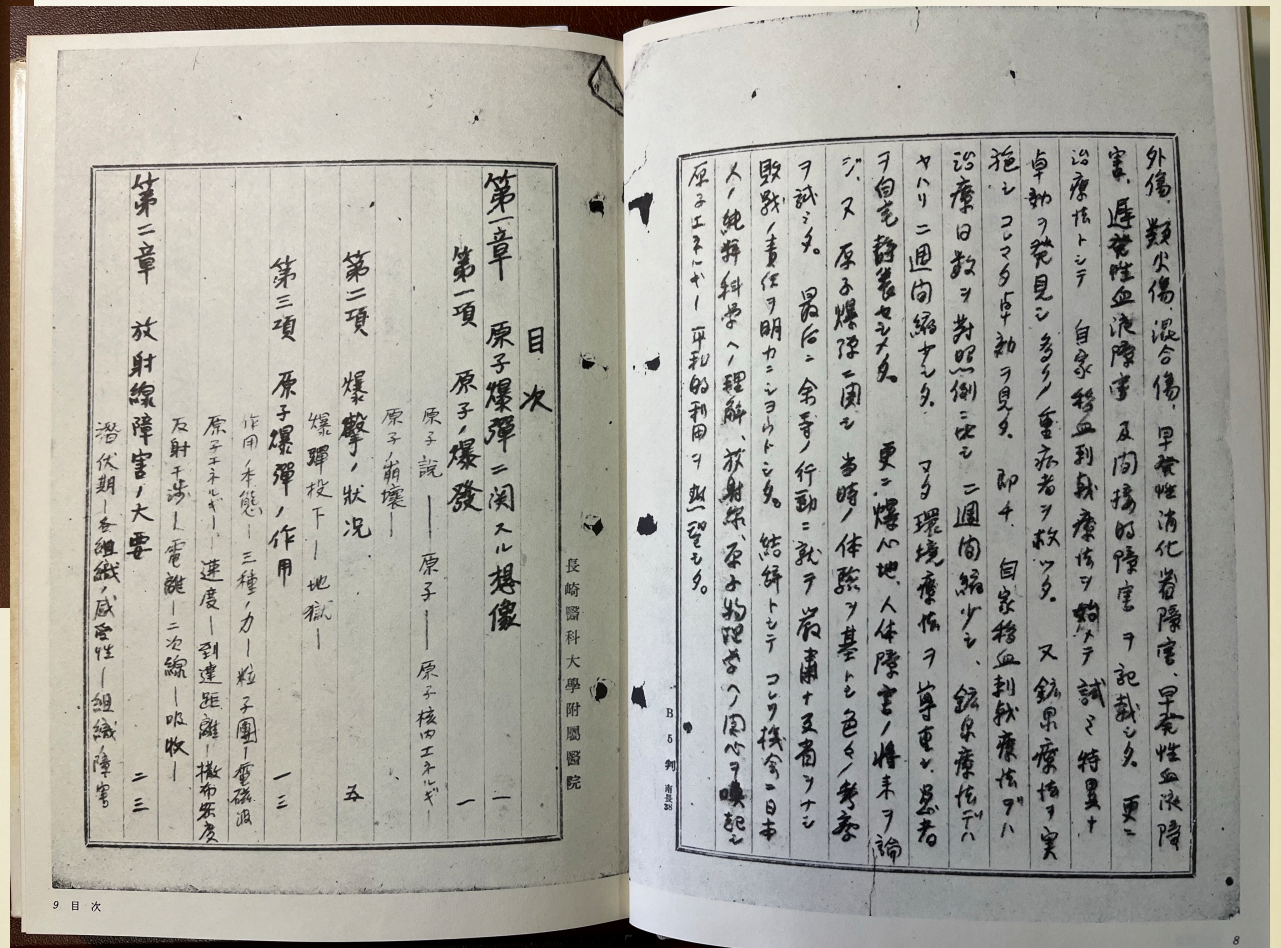 外傷、類火傷、混合傷、早発性消化器障害、早発性血液障
害、遅発性血液障害 及間接的障害 ヲ記載シタ。 更ニ
治療法トシテ 自家移血刺戟療法ヲ始メテ試ミ特異ナ
卓効ヲ発見シ 多クノ重病者ヲ救ツタ。 又 鉱泉療法ヲ実
施シ コレマタ卓効ヲ見タ。 即チ 自家移血刺戟療法デハ
治療日数ヲ対照例ニ比シ 二週間縮少シ、鉱泉療法デハ
ヤハリ二週間縮少シタ。 マタ 環境療法ヲ尊重シ、患者
ヲ自宅静養セシメタ。 更ニ爆心地、人体障害ノ将来ヲ論
ジ、又 原子爆弾ニ関シ 当時ノ体験ヲ基トシ色々ノ考察
ヲ試ミタ。 最后ニ余等ノ行動ニ就テ厳粛ナ反省ヲナシ
敗戦ノ責任ヲ明カニシヨウトシタ。 結辞トシテ コノ機会ニ日本
人ノ純粋科学ヘノ理解、放射線、原子物理学ヘノ関心ヲ喚起シ
原子エネルギー 平和的利用ヲ熱望シタ。
B5判 南長38
8
長崎醫科大學附屬醫院
目次
第一章 原子爆彈ニ関スル想像 一
第一項 原子ノ爆發 一
原子説 ― 原子 ― 原子核内エネルギ
原子ノ崩壊 ―
第二項 爆撃ノ状況 五
爆彈投下 ― 地獄 ―
第三項 原子爆彈ノ作用 一三
作用ノ本態 ― 三種ノ力 ― 粒子團 ― 電磁波
原子エネルギー ― 速度 ― 到達距離 ― 撒布密度
反射干渉 ― 電離 ― 二次線 ― 吸收 ―
第二章 放射線障害ノ大要 二三
潜伏期 ― 各組織ノ感受性 ― 組織ノ障害
9 目次